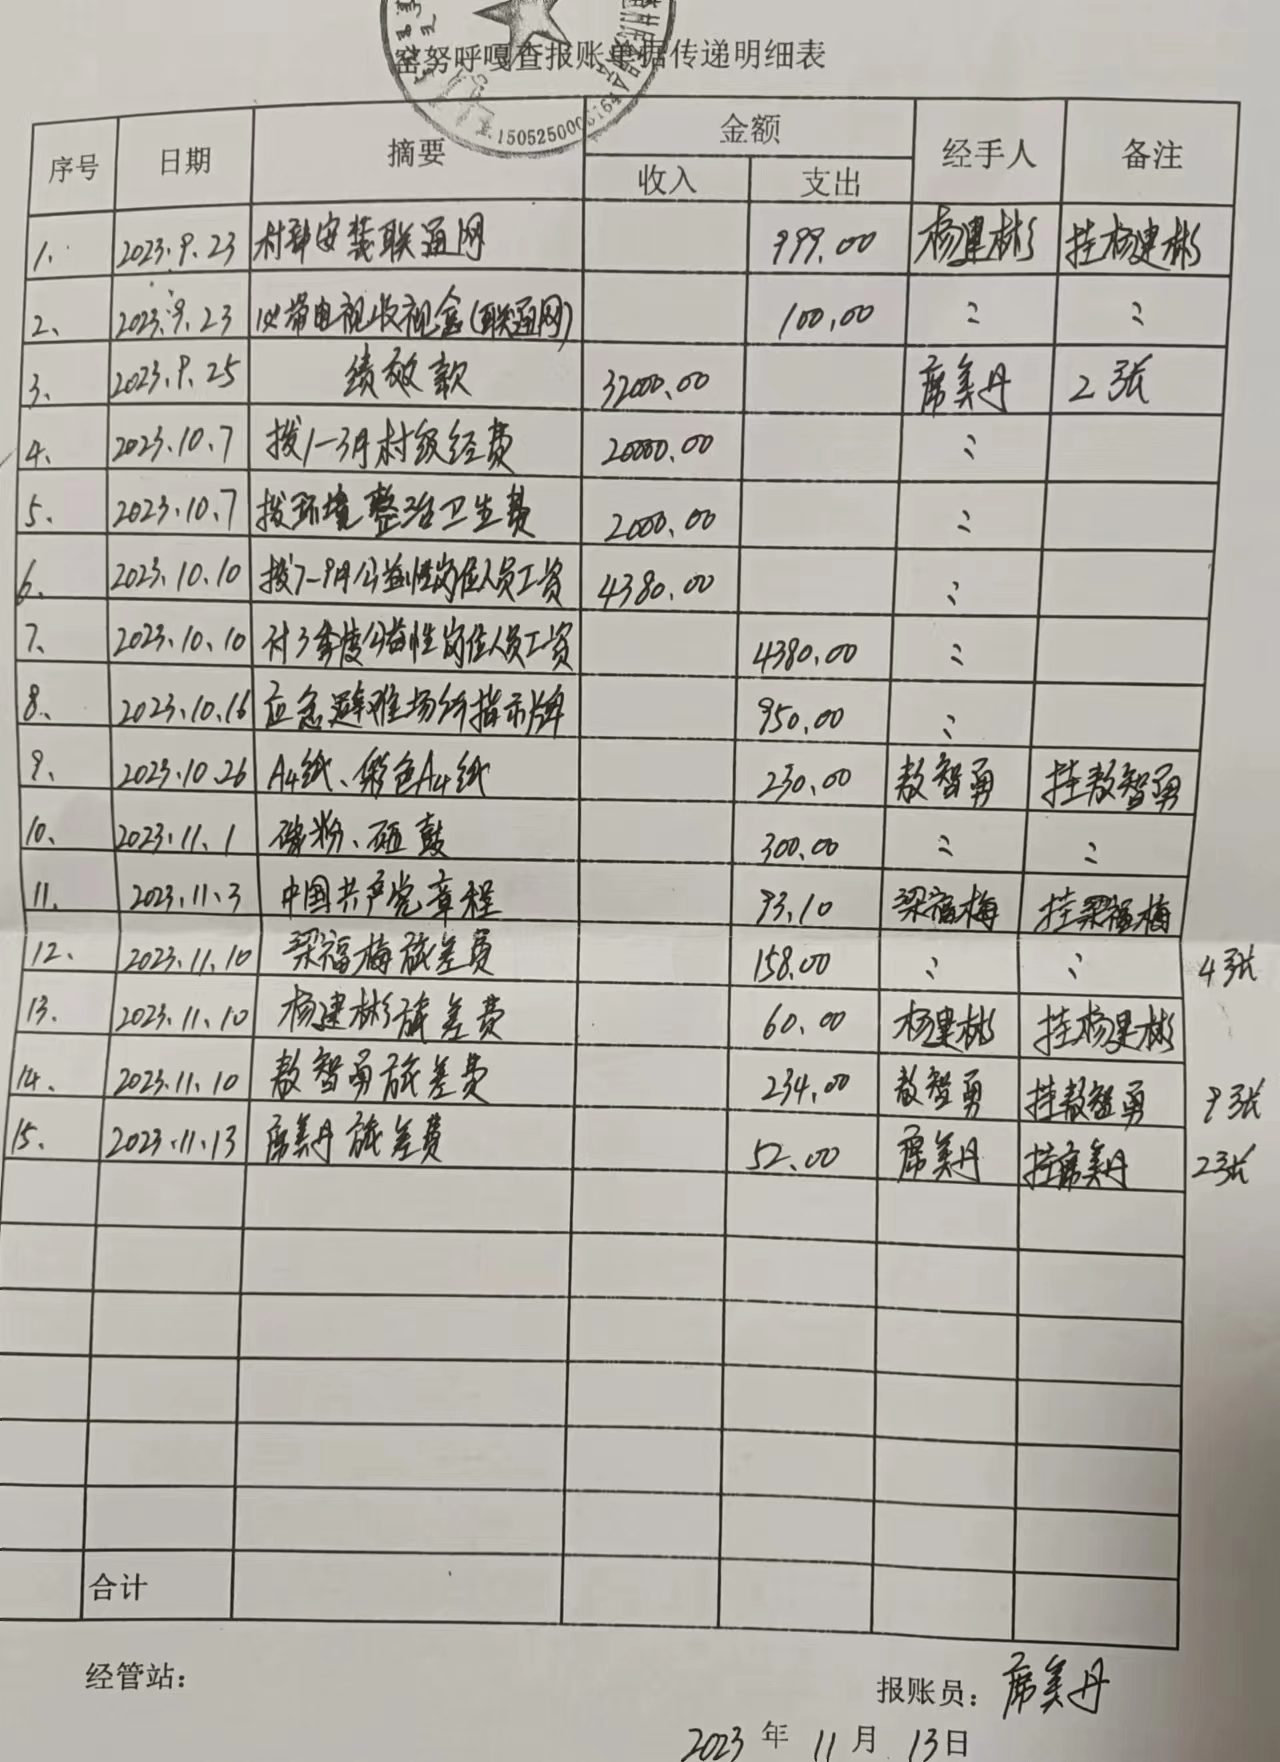 窑努呼嘎查报账单据传递明细表
1505250003
序号 日期 摘要 金额 经手人 备注
收入 支出
1. 2023.9.23 村部安装联通网 999.00 杨建彬 挂杨建彬
2、 2023.9.23 电视收视盒(联通网) 100.00 〃 〃
3、 2023.9.25 绩效款 32000.00 席美丹 2张
4、 2023.10.7 拨1-3月村级经费 20000.00 〃
5、 2023.10.7 拨环境整治卫生费 2000.00 〃
6、 2023.10.10 拨7-9月公益性岗位人员工资 4380.00 〃
7、 2023.10.10 付3季度公益性岗位人员工资 4380.00 〃
8、 2023.10.16 应急避难场所指示牌 950.00 〃
9、 2023.10.26 A4纸、彩色A4纸 230.00 敖智勇 挂敖智勇
10、 2023.11.1 碳粉、硒鼓 300.00 〃 〃
11. 2023.11.3 中国共产党章程 93.10 梁福梅 挂梁福梅
12. 2023.11.10 梁福梅旅差费 158.00 〃 〃 4张
13. 2023.11.10 杨建彬旅差费 60.00 杨建彬 挂杨建彬
14. 2023.11.10 敖智勇旅差费 234.00 敖智勇 挂敖智勇 9张
15. 2023.11.13 席美丹旅差费 52.00 席美丹 挂席美丹 2张
合计
经管站: 报账员: 席美丹
2023 年 11 月 13日